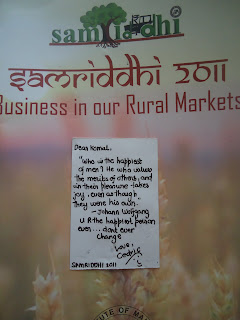 samriddhi ®
SAMRIDDHI 2011
Business in our Rural Markets
Dear Komal,
"Who is the happiest
of men? He who values
the merits of others, and
in their pleasure takes
joy, even as though
they were his own."
- Johann Wolfgang
U R the happiest person
ever... dont ever
change
Love,
Cedric
SAMRIDDHI 2011
TUTE OF MA